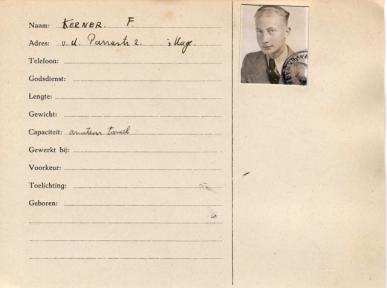 Naam: KERNER. F.
Adres: v. d. Parrastr 2. 's Hage.
Telefoon:
Godsdienst:
Lengte:
Gewicht:
Capaciteit: amateur toneel
Gewerkt bij:
Voorkeur:
Toelichting:
Geboren: